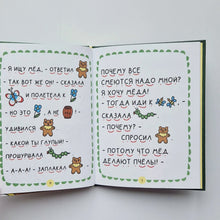 - Я ИЩУ МЁД, - ОТВЕТИЛ
- ТАК ВОТ ЖЕ ОН! - СКАЗАЛА
И ПОЛЕТЕЛА К
- НО ЭТО , А НЕ ! -
УДИВИЛСЯ
- КАКОЙ ТЫ ГЛУПЫЙ! -
ПРОШУРШАЛА
- А-А-А! - ЗАПЛАКАЛ
ПОЧЕМУ ВСЕ
СМЕЮТСЯ НАДО МНОЙ?
Я ХОЧУ МЁДА!
- ТОГДА ИДИ К , -
СКАЗАЛА
- ПОЧЕМУ? -
СПРОСИЛ
- ПОТОМУ ЧТО МЁД
ДЕЛАЮТ ПЧЁЛЫ! -